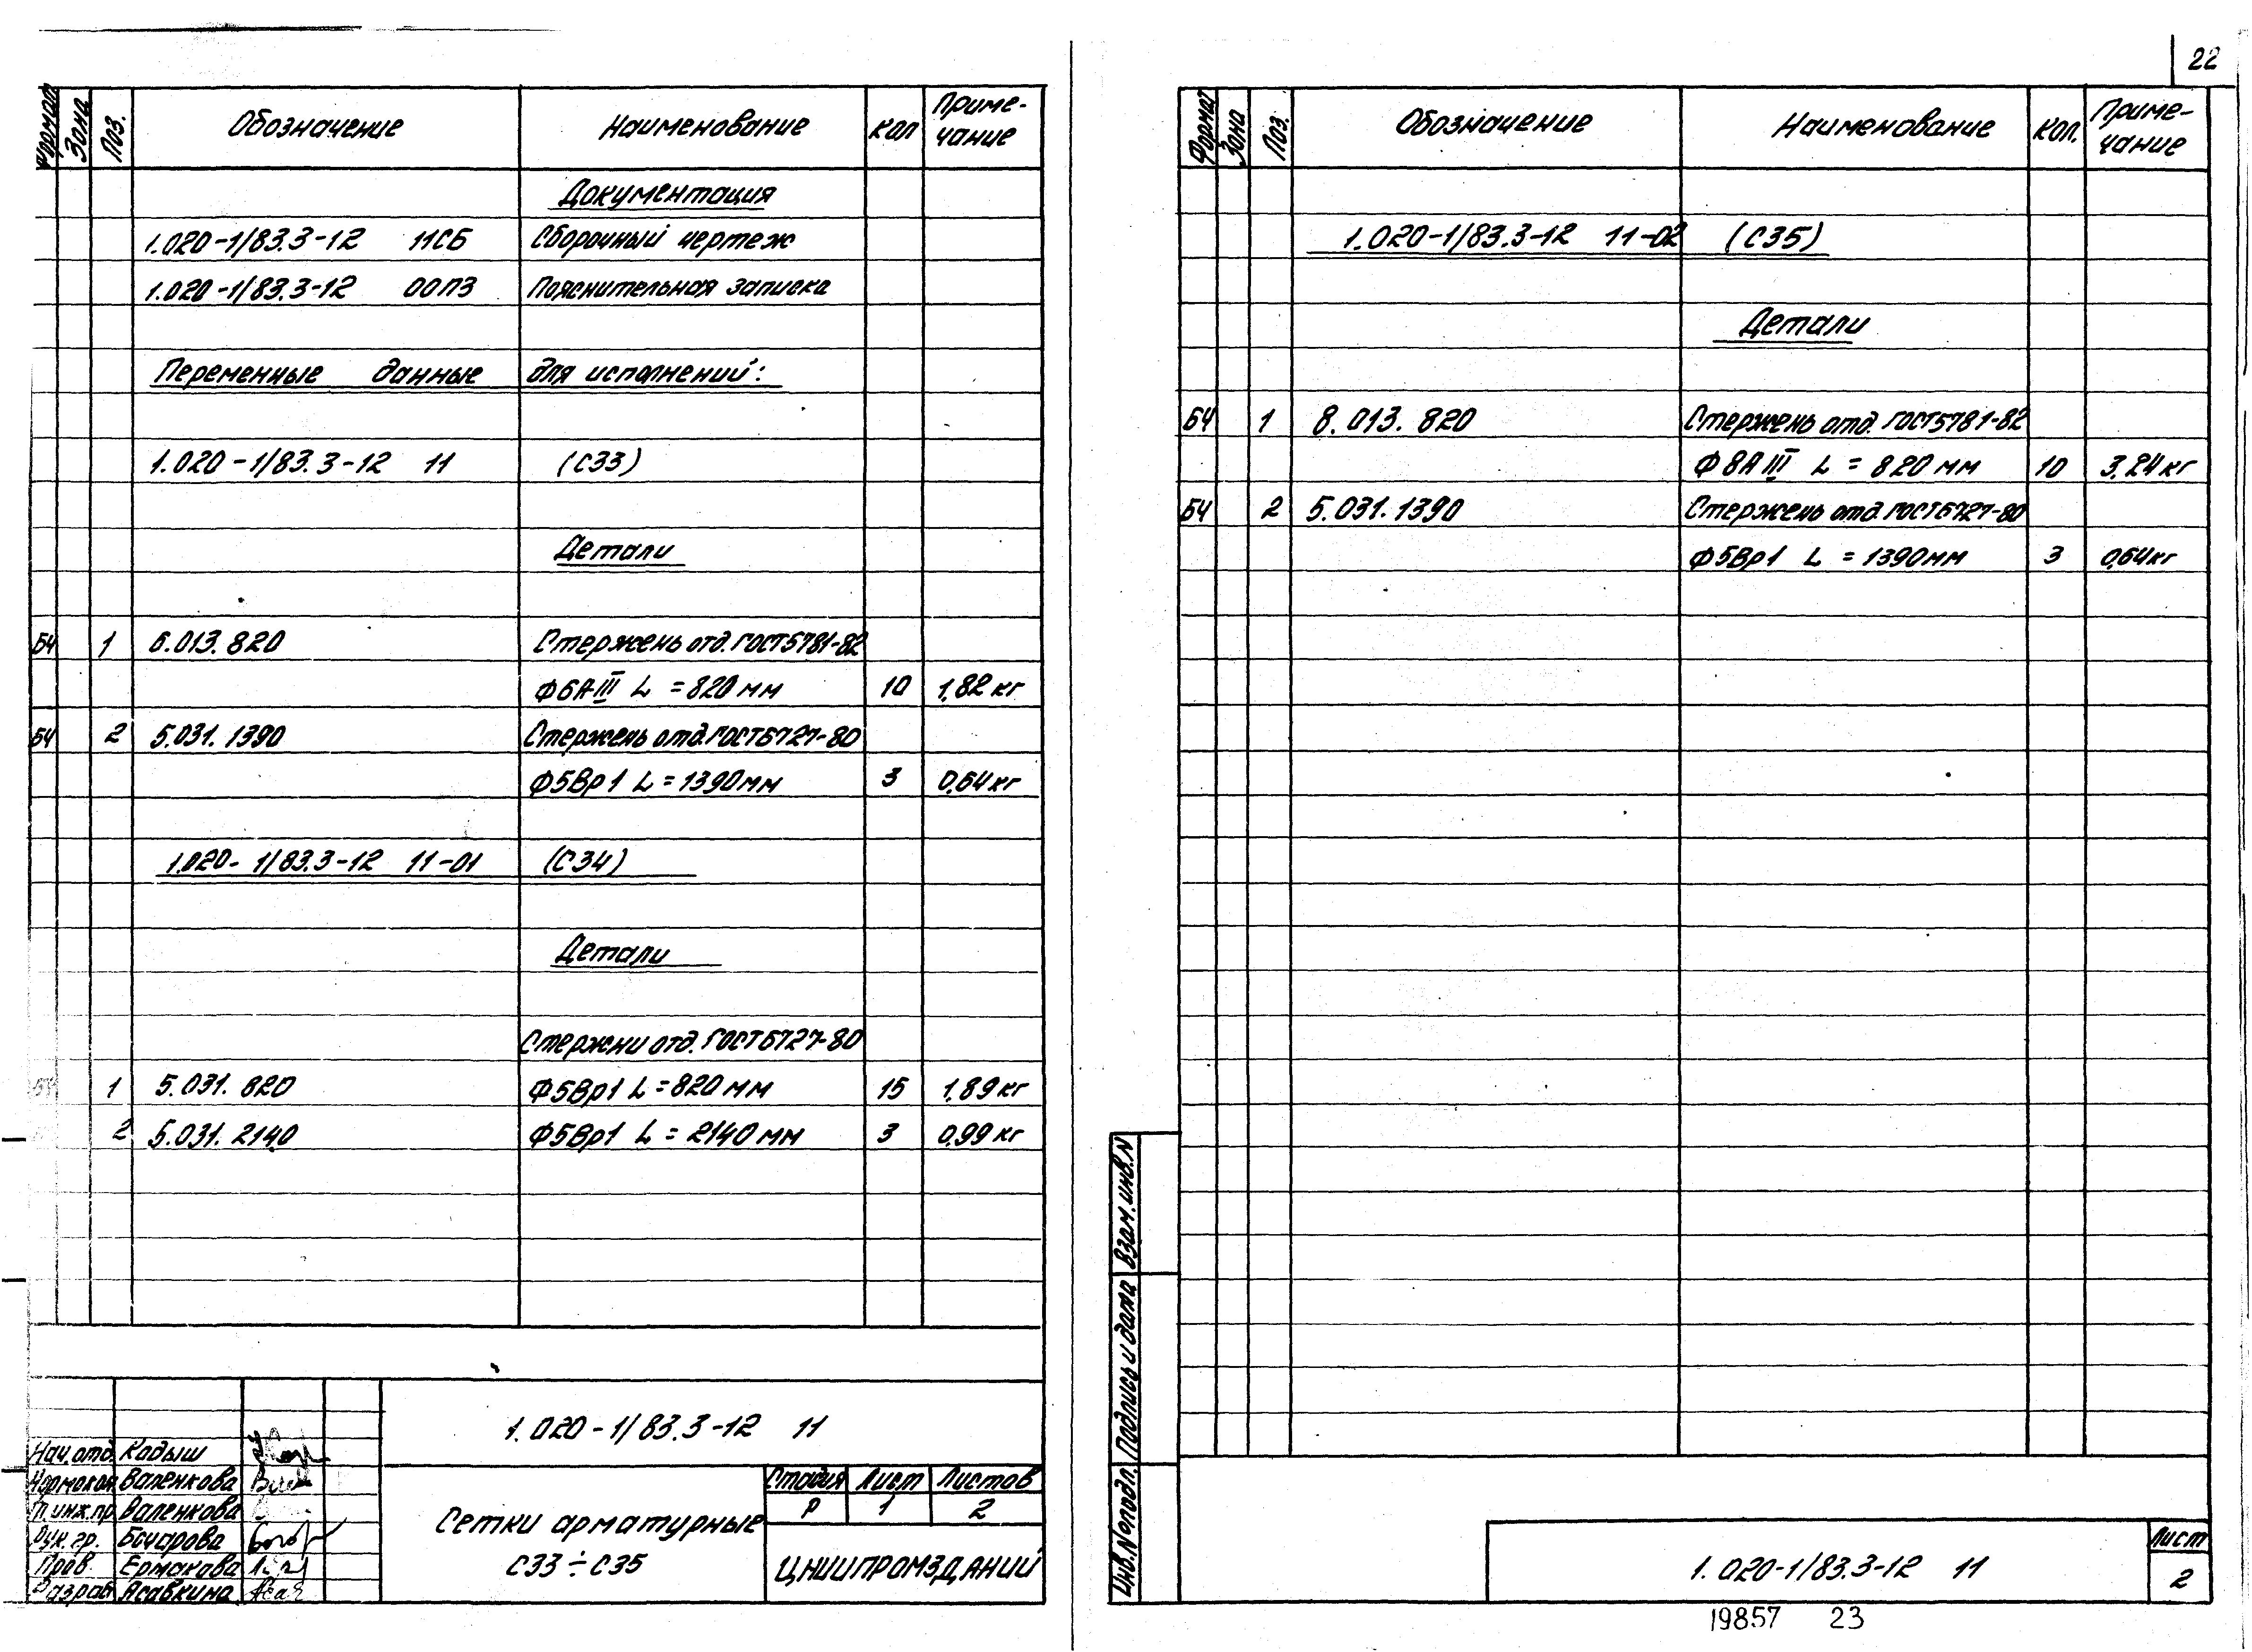 22
Формат Зона Поз. Обозначение Наименование Кол Приме-
чание
Документация
1.020-1/83.3-12 11СБ Сборочный чертеж
1.020-1/83.3-12 00ПЗ Пояснительная записка
Переменные данные для исполнений:
1.020-1/83.3-12 11 (С33)
Детали
БЧ 1 6.013.820 Стержень отд. ГОСТ5781-82
Ф6АIII L = 820 мм 10 1,82 кг
БЧ 2 5.031.1390 Стержень отд. ГОСТ6727-80
Ф5Вр1 L = 1390 мм 3 0,64 кг
1.020-1/83.3-12 11-01 (С34)
Детали
Стержни отд. ГОСТ6727-80
БЧ 1 5.031.820 Ф5Вр1 L = 820 мм 15 1,89 кг
2 5.031.2140 Ф5Вр1 L = 2140 мм 3 0,99 кг
1.020-1/83.3-12 11
Нач.отд. Кодыш
Нормокон. Валенкова
Гл.инж.пр Валенкова
Рук.гр. Бочарова
Пров. Ермакова
Разраб. Асавкина
Сетки арматурные
С33÷С35
Стадия Лист Листов
Р 1 2
ЦНИИПРОМЗДАНИЙ
Формат Зона Поз. Обозначение Наименование Кол. Приме-
чание
1.020-1/83.3-12 11-02 (С35)
Детали
БЧ 1 8.013.820 Стержень отд. ГОСТ5781-82
Ф8АIII L = 820 мм 10 3,24 кг
БЧ 2 5.031.1390 Стержень отд. ГОСТ6727-80
Ф5Вр1 L = 1390 мм 3 0,64 кг
Инв.N подл. Подпись и дата Взам.инв.N
1.020-1/83.3-12 11
Лист
2
19857 23